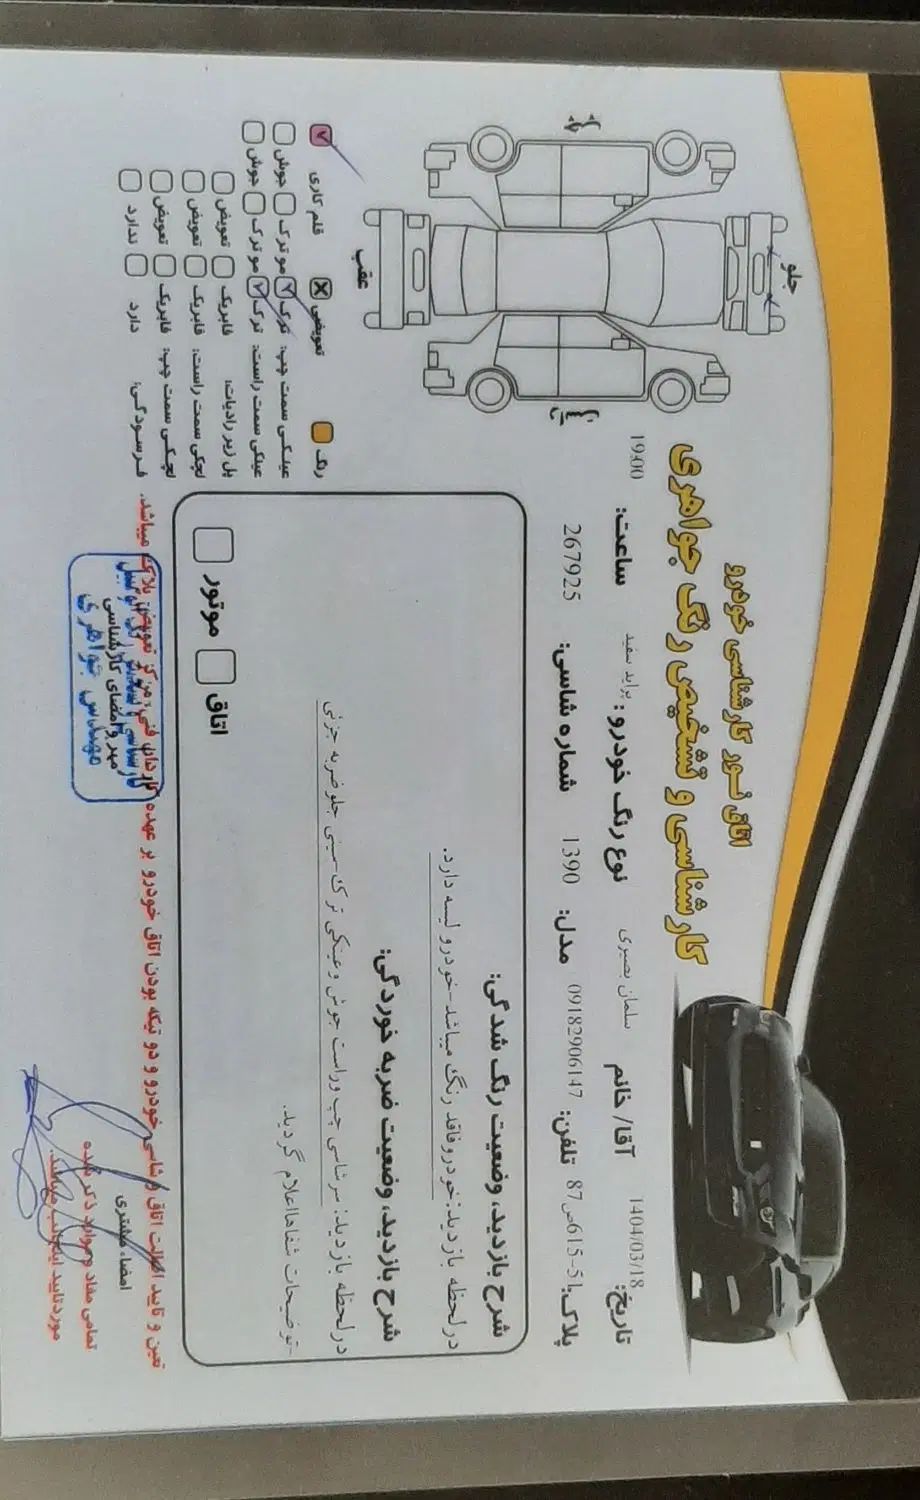 اتاق نور کارشناسی خودرو
کارشناسی و تشخیص رنگ جواهری
تاریخ: 1404/03/18 آقا/ خانم سلمان بصیری نوع رنگ خودرو: پراید سفید ساعت: 19:00
پلاک: 51-615ص87 تلفن: 09182906147 مدل: 1390 شماره شاسی: 267925
شرح بازدید، وضعیت رنگ شدگی:
در لحظه بازدید: خودرو فاقد رنگ میباشد-خودرو لیسه دارد.
شرح بازدید، وضعیت ضربه خوردگی:
در لحظه بازدید: سر شاسی چپ و راست جوش و عینکی ترک-سینی جلو ضربه جزئی
-توضیحات شفاها اعلام گردید.
اتاق موتور
جلو
عقب
چپ
رنگ تعویض قلم کاری
عینکی سمت چپ: ترک مو ترک جوش
عینکی سمت راست: ترک مو ترک جوش
پل زیر رادیات: فابریک تعویض
لچکی سمت راست: فابریک تعویض
لچکی سمت چپ: فابریک تعویض
فرسودگی: دارد ندارد
تعین و تایید اصالت اتاق و شاسی خودرو و دو تیکه بودن اتاق خودرو بر عهده کاردان فنی مرکز تعویض پلاک میباشد.
امضاء مشتری
تمامی مفاد و موارد ذکر شده
مورد تایید اینجانب میباشد.
مهر و امضای کارشناسی
مهندس جواهری